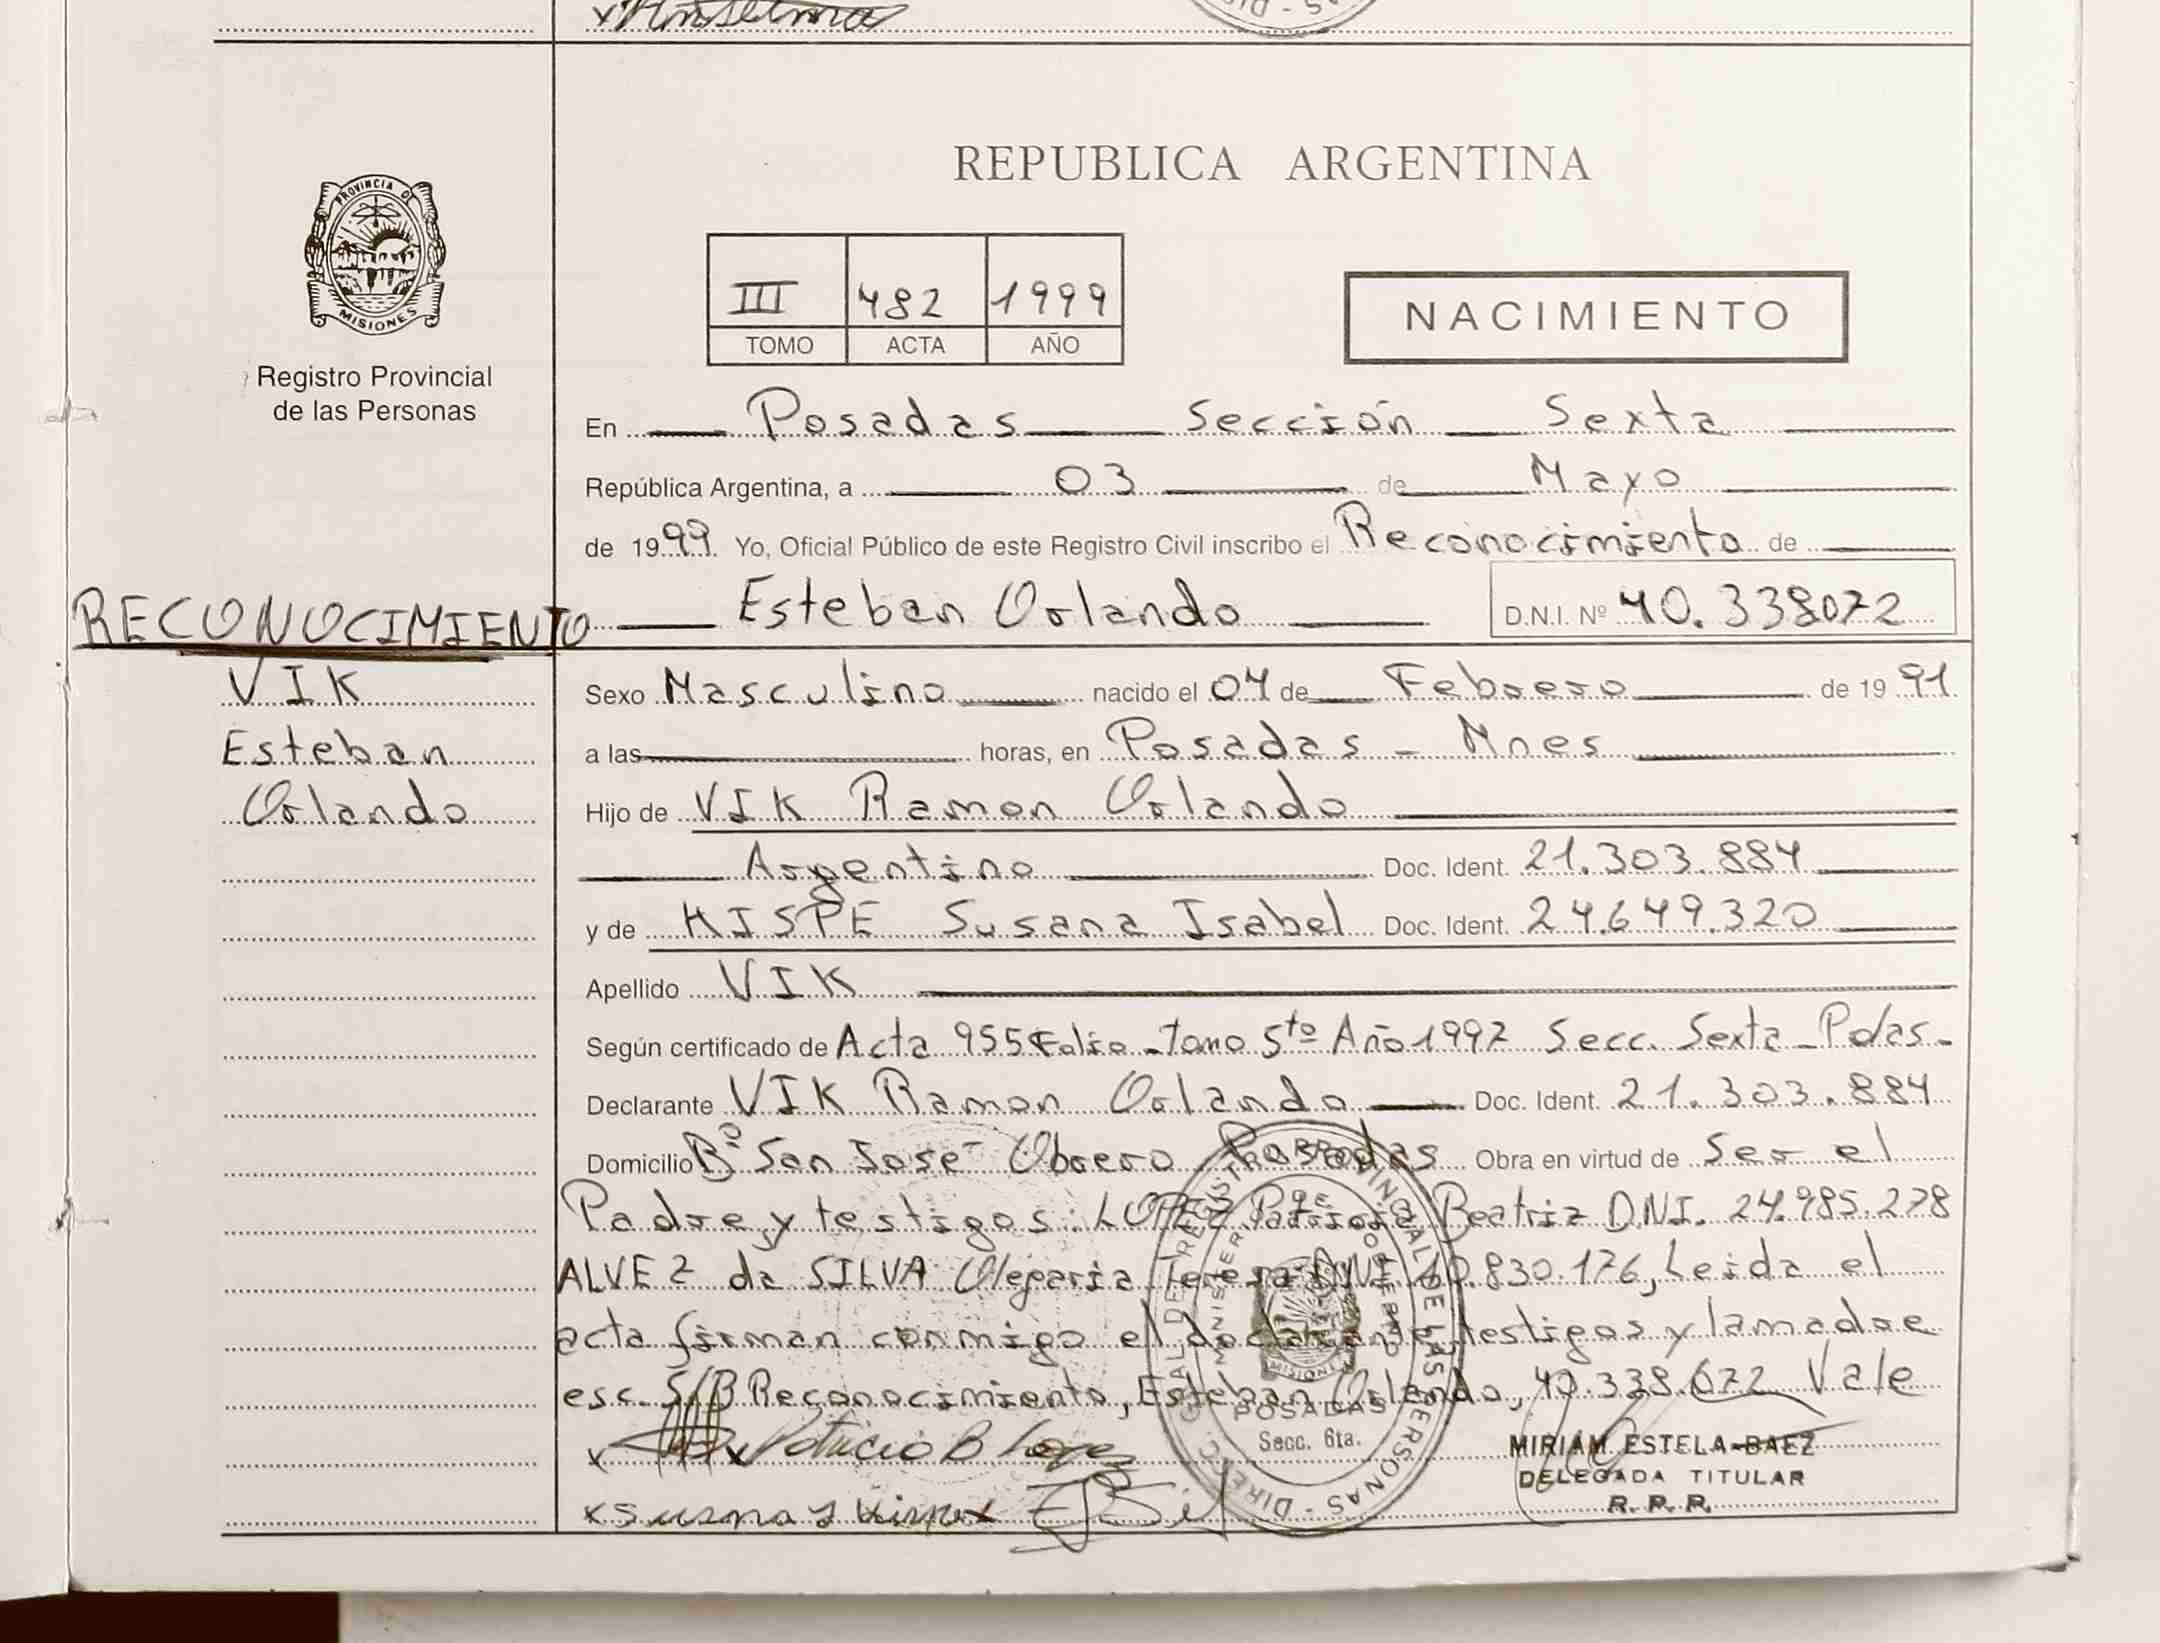 REPUBLICA ARGENTINA
PROVINCIA DE
MISIONES
Registro Provincial
de las Personas
III 482 1999
TOMO ACTA AÑO
NACIMIENTO
En Posadas Sección Sexta
República Argentina, a 03 de Mayo
de 1999. Yo, Oficial Público de este Registro Civil inscribo el Reconocimiento de
RECONOCIMIENTO
Esteban Orlando D.N.I. Nº 40.338072
VIK
Esteban
Orlando
Sexo Masculino nacido el 04 de Febrero de 1991
a las horas, en Posadas - Mnes
Hijo de VIK Ramon Orlando
Argentino Doc. Ident. 21.303.884
y de KISPE Susana Isabel Doc. Ident. 24.649.320
Apellido VIK
Según certificado de Acta 955 Folio - Tomo 5to Año 1997 Secc. Sexta - Pdas -
Declarante VIK Ramon Orlando Doc. Ident. 21.303.884
Domicilio Bº San José Obrero Posadas Obra en virtud de Ser el
Padre y testigos: LOPEZ Patricia Beatriz D.N.I. 24.985.278
ALVEZ da SILVA Olegaria Teresa DNI 10.830.176, Leida el
acta firman conmigo el declarante testigos y la madre
esc. S/B Reconocimiento, Esteban Orlando, 40.338.072 Vale
Patricia B Lopez
DIRECC. GRAL DEL REGISTRO PROVINCIAL DE LAS PERSONAS
MINISTERIO DE GOBIERNO
MISIONES
POSADAS
Secc. 6ta.
MIRIAM ESTELA BAEZ
DELEGADA TITULAR
R. P. P.